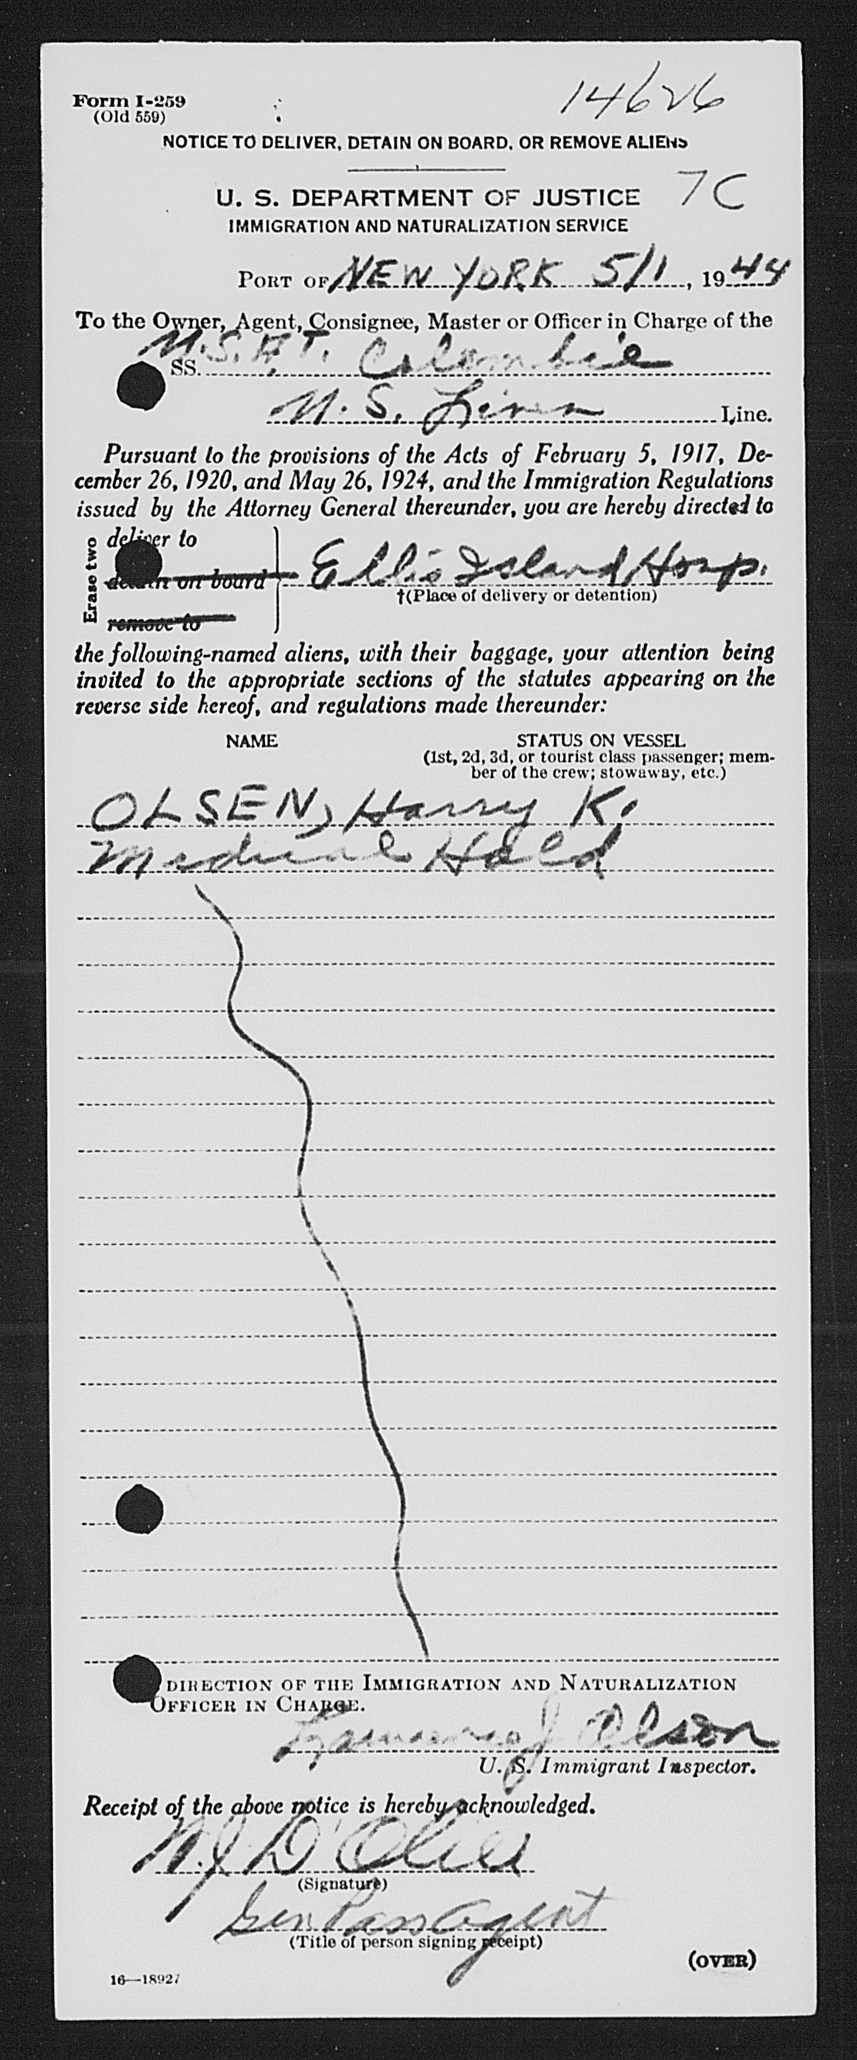 Form I-259
(Old 559)
14626
NOTICE TO DELIVER, DETAIN ON BOARD, OR REMOVE ALIENS
U. S. DEPARTMENT OF JUSTICE
7C
IMMIGRATION AND NATURALIZATION SERVICE
PORT OF NEW YORK 5/1, 1944
To the Owner, Agent, Consignee, Master or Officer in Charge of the
SS. U.S.A.T. Colombie
U.S. Lines Line.
Pursuant to the provisions of the Acts of February 5, 1917, De-
cember 26, 1920, and May 26, 1924, and the Immigration Regulations
issued by the Attorney General thereunder, you are hereby directed to
Erase two
deliver to
detain on board
remove to
Ellis Island Hosp.
†(Place of delivery or detention)
the following-named aliens, with their baggage, your attention being
invited to the appropriate sections of the statutes appearing on the
reverse side hereof, and regulations made thereunder:
NAME
STATUS ON VESSEL
(1st, 2d, 3d, or tourist class passenger; mem-
ber of the crew; stowaway, etc.)
OLSEN, Harry K.
Medical Hold
DIRECTION OF THE IMMIGRATION AND NATURALIZATION
OFFICER IN CHARGE.
Lawrence J Olson
U. S. Immigrant Inspector.
Receipt of the above notice is hereby acknowledged.
D'Olier
(Signature)
Gen Pass Agent
(Title of person signing receipt)
(OVER)
16—18927